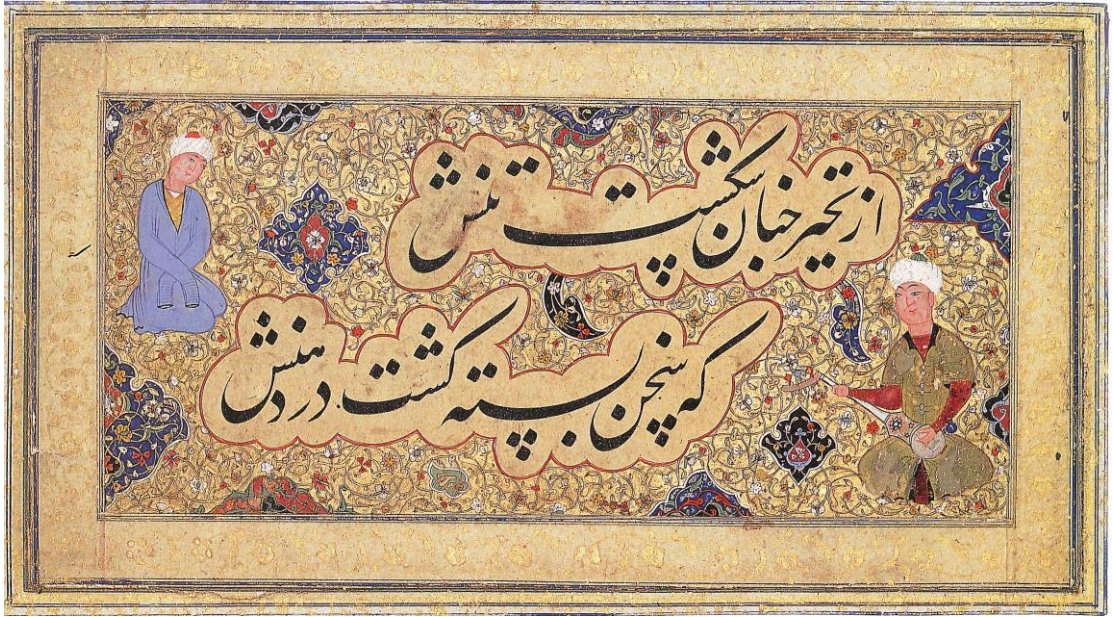 از تحیر چنان شکست تنش
که سخن بسته گشت در دهنش